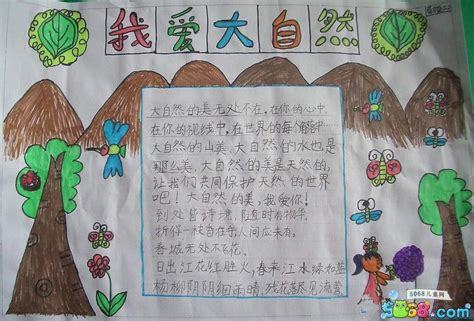 我爱大自然
大自然的美无处不在,在你的心中,
在你的视线中,在世界的每个角落中……
大自然的山美、大自然的水也是
那么美,大自然的美是天然的,
让我们共同保护天然的世界
吧!大自然的美,我爱你!
到处皆诗境,随时有物华
折得一枝香在手,人间应未有。
春城无处不飞花。
日出江花红胜火,春来江水绿如蓝
杨柳阴阴细雨晴,残花落尽见流莺
5068儿童网
5068.com